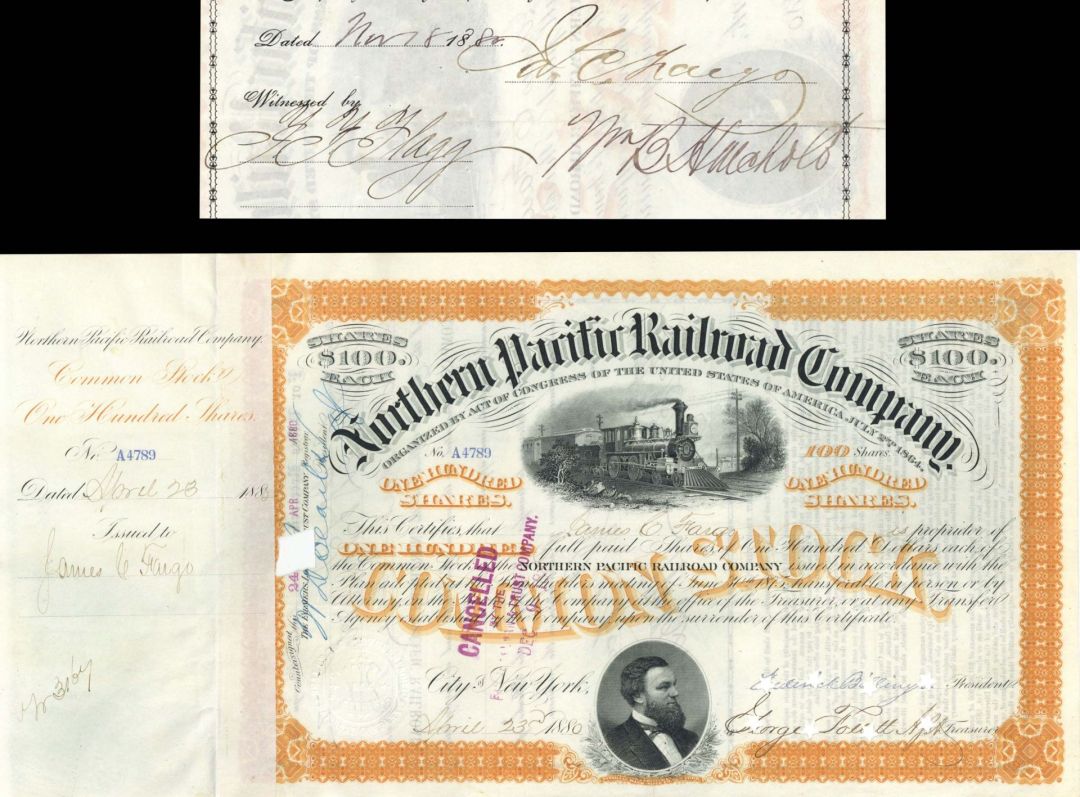 Dated Nov 18 1880.
Jas. C. Fargo
Witnessed by
Flagg
Wm B
Northern Pacific Railroad Company.
Common Stock
One Hundred Shares.
No. A4789
Dated April 23 1880
Issued to
James C Fargo
3167
SHARES $100. EACH
Northern Pacific Railroad Company.
SHARES $100. EACH
ORGANIZED BY ACT OF CONGRESS OF THE UNITED STATES OF AMERICA, JULY 2ND 1864.
No. A4789
100 Shares.
ONE HUNDRED SHARES.
ONE HUNDRED SHARES.
This Certifies that James C Fargo is proprietor of
ONE HUNDRED full paid Shares of One Hundred Dollars each of
the Common Stock of the NORTHERN PACIFIC RAILROAD COMPANY issued in accordance with the
Plan adopted at the meeting of June transferable in person or by
Attorney on the Books of the Company at the office of the Treasurer, or at any Transfer
Agency established by the Company upon the surrender of this Certificate.
COMMON STOCK
CANCELLED
TRUST COMPANY.
DEC
24 APR 1880
Countersigned the
City of New York,
April 23d 1880
Frederick Billings President
George Treasurer